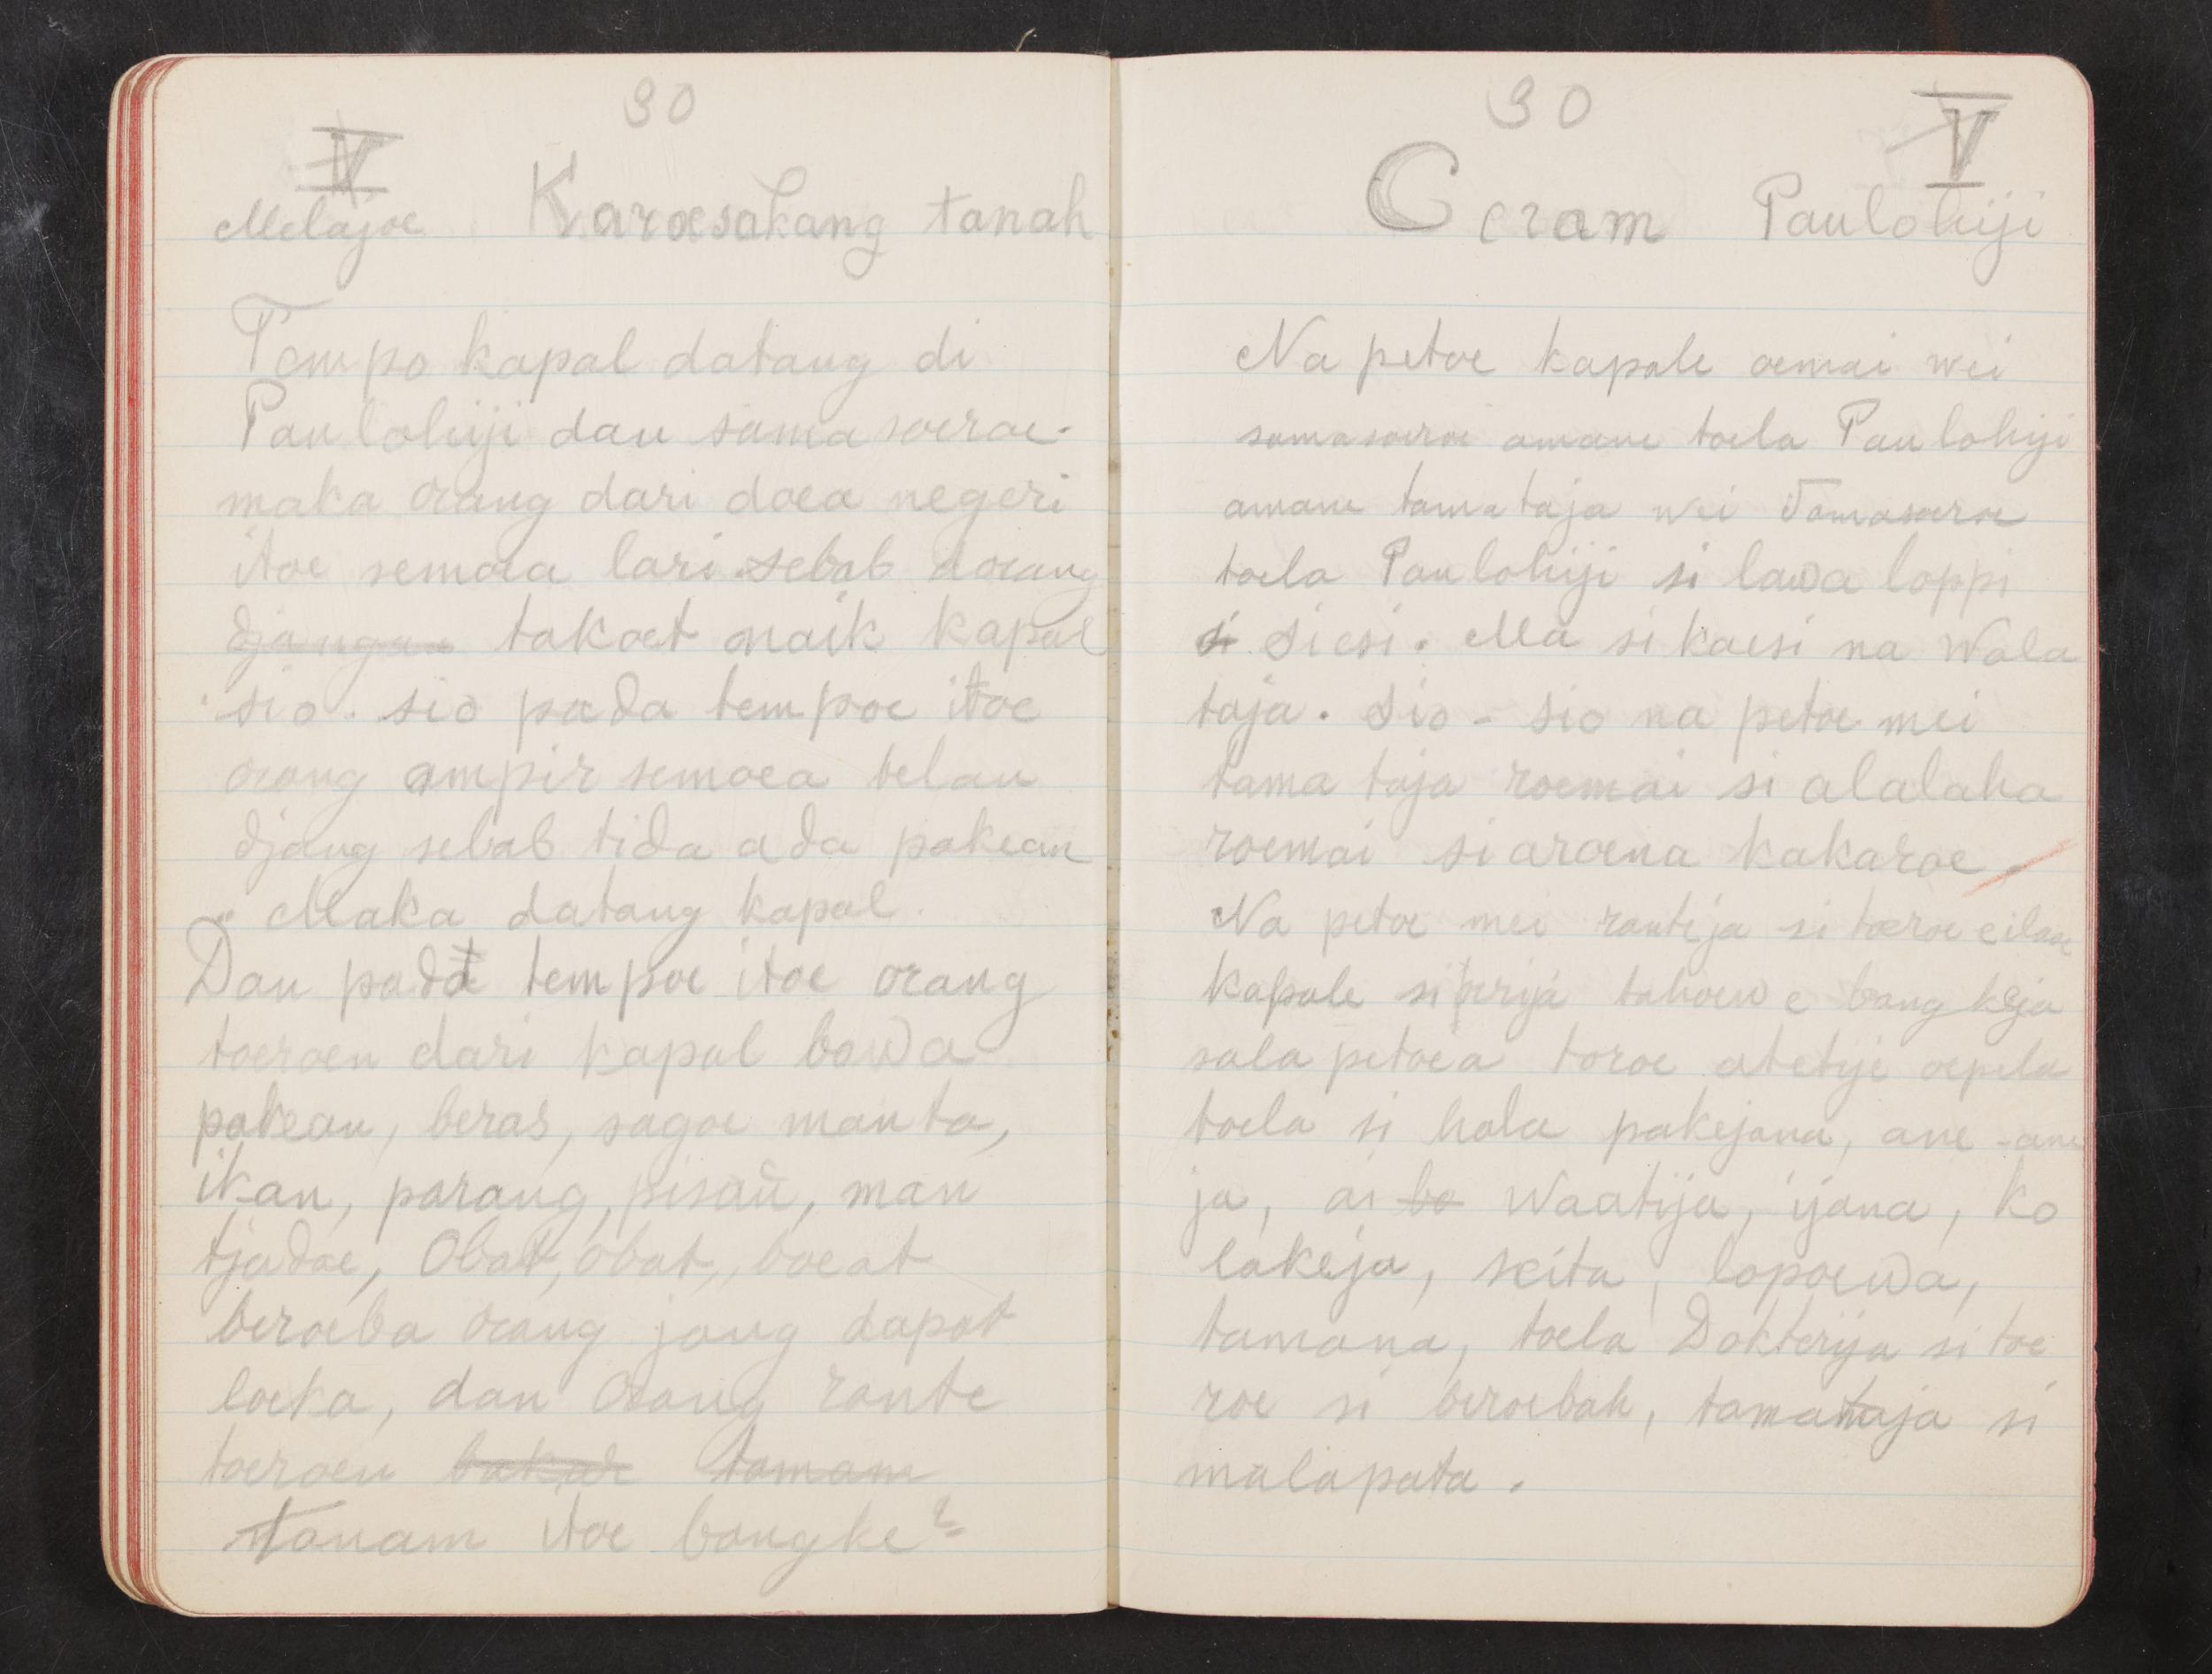 30
V
Melajoe Karoesakang tanah
Tempo kapal datang di
Paulohiji dan samasoeroe.
maka orang dari doea negeri
itoe semoea lari sebab dorang
djangan takoet naik kapal
sio. sio pada tempoe itoe
orang ampir semoea telan
djang sebab tida ada pakean
" Maka datang kapal.
Dan pada tempoe itoe orang
toeroen dari kapal bowa
pakean, beras, sagoe manta,
ikan, parang, pisau, man
tjadoe, Obat, obat, boeat
beroeba orang jang dapat
loeka, dan Orang rante
toeroen bakar tamam
Tanam itoe bangke²
30
V
Ceram Paulohiji
Na petoe kapale oemai wei
samasoeroe amane toela Paulohiji
amane tamataja wei Samasoeroe
toela Paulohiji si lawa loppi
si siesi. Ma sikaesi na Wala
taja. Sio - sio na petoe mei
tama taja roemai si alalaha
roemai siaroena kakaroe.
Na petoe mei rantija si toeroe
kapale tahoewe bangkeja
sala petoea toroe atetije oepela
toela si hala pakejana, ane - ane
ja, ai bo Waatija, ijana, ko
lakeja, seita, lopoewa,
tamana, toela Dokterija si toe
roe si beroebah, tamataja si
malapata.